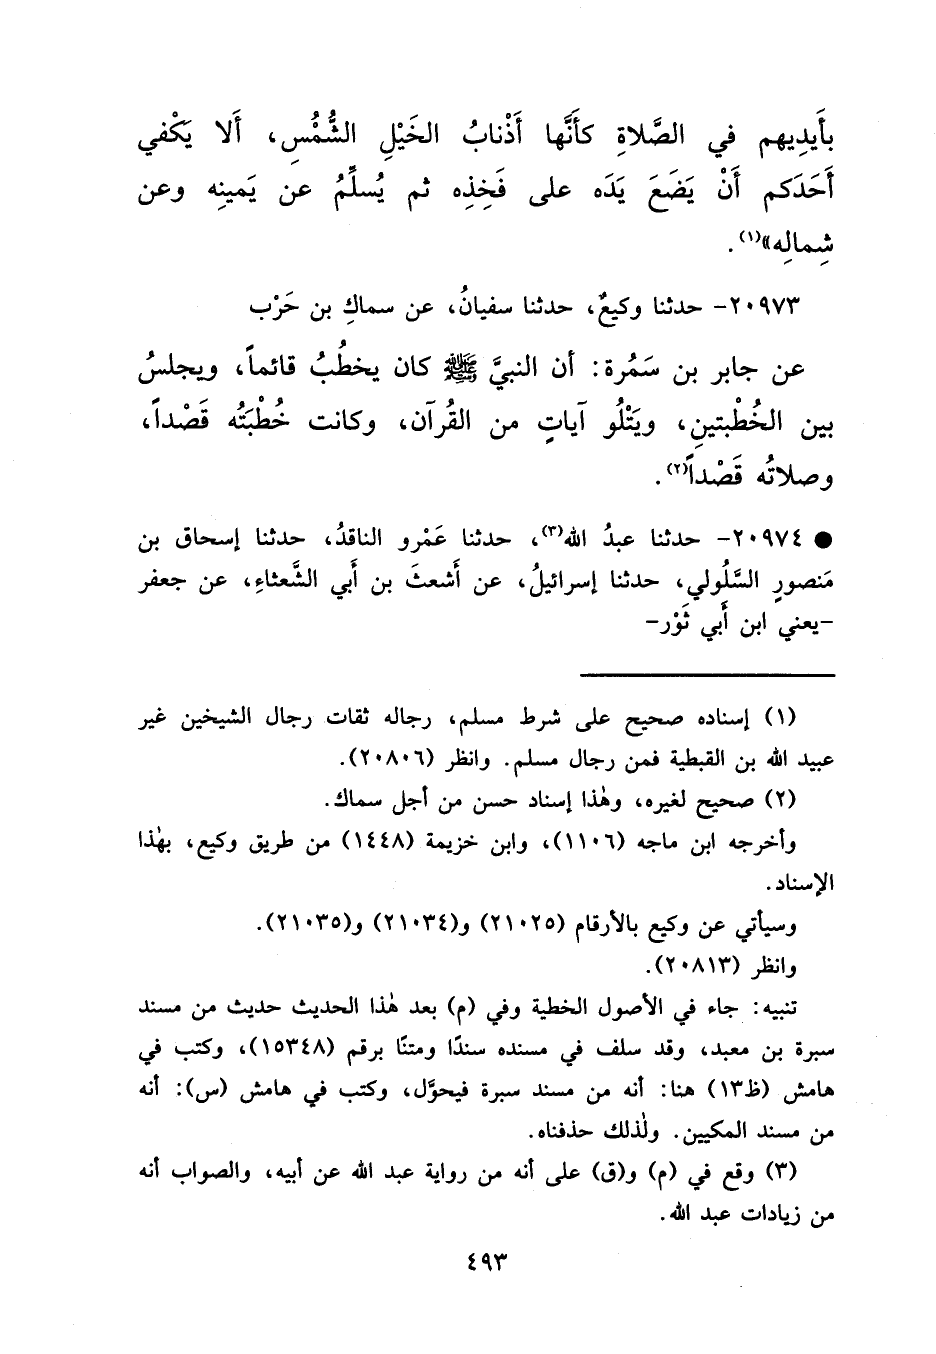 بأَيدِيهم في الصَّلاةِ كأَنَّها أَذْنابُ الخَيْلِ الشُّمُسِ، أَلا يَكْفي
أَحَدَكم أَنْ يَضَعَ يَدَه على فَخِذِه ثم يُسلِّمُ عن يَمينِه وعن
شِمالِه»(١).
٢٠٩٧٣- حدثنا وكيعٌ، حدثنا سفيانُ، عن سماكِ بن حَرْب
عن جابر بن سَمُرة: أن النبيَّ ﷺ كان يخطُبُ قائماً، ويجلسُ
بين الخُطْبتينِ، ويَتْلُو آياتٍ من القُرآن، وكانت خُطْبَتُه قَصْداً،
وصلاتُه قَصْداً(٢).
● ٢٠٩٧٤- حدثنا عبدُ الله(٣)، حدثنا عَمْرو الناقدُ، حدثنا إسحاق بن
مَنصورٍ السَّلُولي، حدثنا إسرائيلُ، عن أَشعثَ بن أَبي الشَّعثاءِ، عن جعفر
-يعني ابن أَبي ثَوْر-
(١) إسناده صحيح على شرط مسلم، رجاله ثقات رجال الشيخين غير
عبيد الله بن القبطية فمن رجال مسلم. وانظر (٢٠٨٠٦).
(٢) صحيح لغيره، وهٰذا إسناد حسن من أجل سماك.
وأخرجه ابن ماجه (١١٠٦)، وابن خزيمة (١٤٤٨) من طريق وكيع، بهٰذا
الإسناد.
وسيأتي عن وكيع بالأرقام (٢١٠٢٥) و(٢١٠٣٤) و(٢١٠٣٥).
وانظر (٢٠٨١٣).
تنبيه: جاء في الأصول الخطية وفي (م) بعد هٰذا الحديث حديث من مسند
سبرة بن معبد، وقد سلف في مسنده سندًا ومتنًا برقم (١٥٣٤٨)، وكتب في
هامش (ظ١٣) هنا: أنه من مسند سبرة فيحوَّل، وكتب في هامش (س): أنه
من مسند المكيين. ولٰذلك حذفناه.
(٣) وقع في (م) و(ق) على أنه من رواية عبد الله عن أبيه، والصواب أنه
من زيادات عبد الله.
٤٩٣